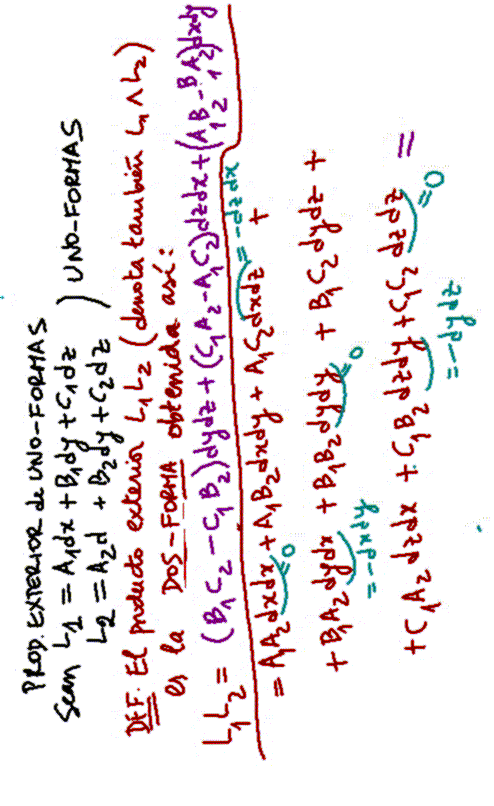 PROD. EXTERIOR de UNO-FORMAS
Sean L₁ = A₁dx + B₁dy + C₁dz
L₂ = A₂d + B₂dy + C₂dz ) UNO-FORMAS
DEF. El producto exterior L₁L₂ (denota también L₁∧L₂)
es la DOS-FORMA obtenida así:
L₁L₂ = (B₁C₂ - C₁B₂)dydz + (C₁A₂ - A₁C₂)dzdx + (A₁B₂ - B₁A₂)dxdy
= A₁A₂dxdx + A₁B₂dxdy + A₁C₂dxdz +
=0 =-dzdx
+ B₁A₂dydx + B₁B₂dydy + B₁C₂dydz +
=-dxdy =0
+ C₁A₂dzdx + C₁B₂dzdy + C₁C₂dzdz =
=-dydz =0